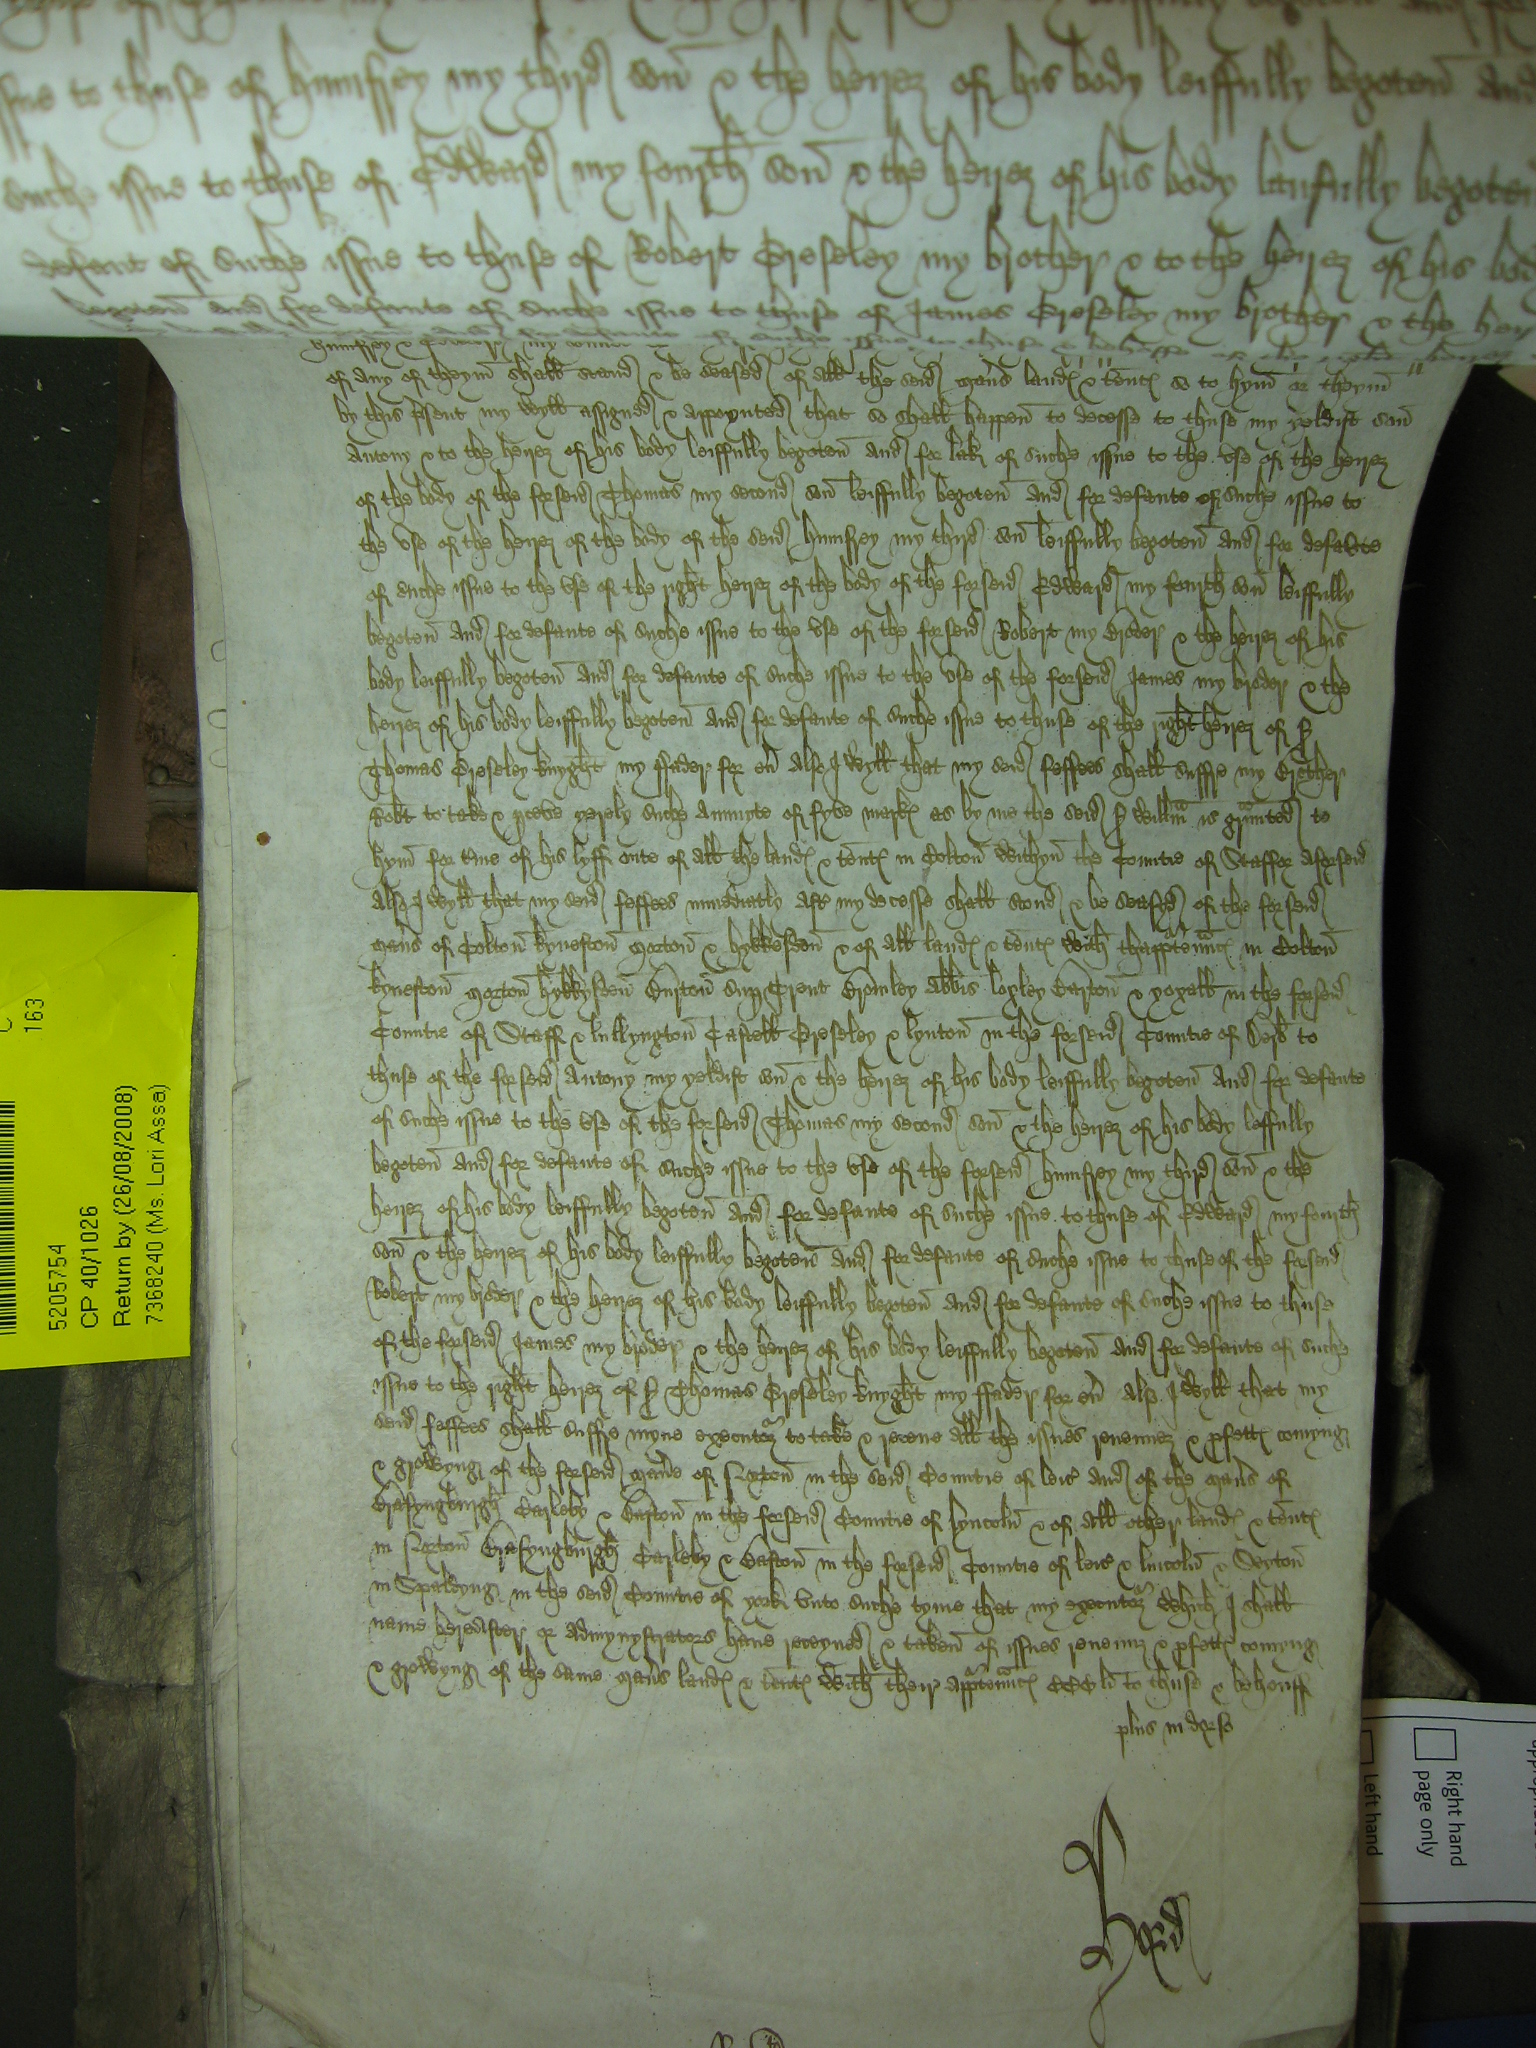 ssue to thuse of Humfrey my third son & the heirez of his body leiffully begoten and
suche issue to thuse of Edward my fourth son & the heirez of his body laufully begoten
defaut of suche issue to thuse of Robert Greseley my brother & to the heirez of his bod
begoten and for defaute of suche issue to thuse of James Greseley my brother & the heir
of any of theym shall stand & be seased of all the seid maners land & tent so to hym or theym
by this psent my wyll assigned & appoynted that so shall happen to decesse to thuse my yeldist son
Antony & to the heirez of his body leiffully begoten and for lak of suche issue to the use of the heirez
of the body of the forseid Thomas my second son leiffully begoten and for defaute of suche issue to
the use of the heirez of the body of the seid Humfrey my third son leiffully begoten and for defaute
of suche issue to the use of the right heirez of the body of the forseid Edward my fourth son leiffully
begoten and for defaute of suche issue to the use of the forseid Robert my broder & the heirez of his
body leiffully begoten and for defaute of suche issue to the use of the forseid James my broder & the
heirez of his body leiffully begoten and for defaute of suche issue to thuse of the right heirez of S
Thomas Greseley knyght my ffader for ev Also I wyll that my seid feffees shall suffre my brother
Robt to take & pceve yerely suche annuyte of fyve mark as by me the seid S Willm is graunted to
hym for tme of his lyff oute of all the land & tent in Colton withyn the Countie of Staffor aforseid
Also I wyll that my seid feffees immediatly aft my decesse shall stond & be seasyd of the forseid
mans of Colton Kyneston Morton & Hykkeston & of all land & tent with thapptennc in Colton
Kyneston Morton Hykkyston Burton sup Trent Bromley Abbis Loxley Barton & Yoxall in the forseid
Countie of Staff & Lullyngton Castell Greseley & Lynton in the forseid Countie of Derb to
thuse of the forseid Antony my yeldist son & the heirez of his body leiffully begoten and for defaute
of suche issue to the use of the forseid Thomas my second son & the heirez of his body leffully
begoten and for defaute of suche issue to the use of the forseid Humfrey my third son & the
heirez of his body leiffully begoten and for defaute of suche issue to thuse of Edward my fourth
son & the heirez of his body leiffully begoten and for defaute of suche issue to thuse of the forseid
Robert my broder & the heirez of his body leiffully begoten and for defaute of suche issue to thuse
of the forseid James my broder & the heirez of his body leiffully begoten and for defaute of suche
issue to the right heirez of S Thomas Greseley knyght my ffader for ev Also I wyll that my
seid feffees shall suffre myne executorz to take & receve all the issues revenuez & pfett comyng
& growyng of the forseid mane of Norton in the seid Countie of Leic and of the mans of
Carleby & Baston in the forseid Countie of Lyncoln & of all other land & tent
in Norton Carleby & Baston in the forseid Countie of Leic & Lincoln &
in Spaldyng in the seid Countie of York unto suche tyme that my executorz which I shall
name hereafter or admynystrators have receyved & taken of issues revenuz & pfett comyng
& growyng of the same mans land & tent with their apptennc CCC li to thuse & behouff
plus in dorso
5205754
CP 40/1026
Return by (26/08/2008)
7368240 (Ms. Lori Assa)
163
Right hand
page only
Left hand